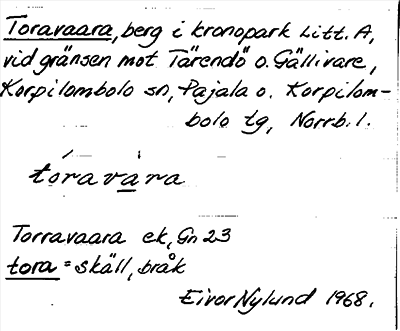 Toravaara, berg i kronopark Litt. A,
vid gränsen mot Tärendö o. Gällivare,
Korpilombolo sn, Pajala o. Korpilom-
bolo tg, Norrb. l.
tóravàra
Torravaara ek, Gn 23
tora = skäll, bråk
Eivor Nylund 1968.